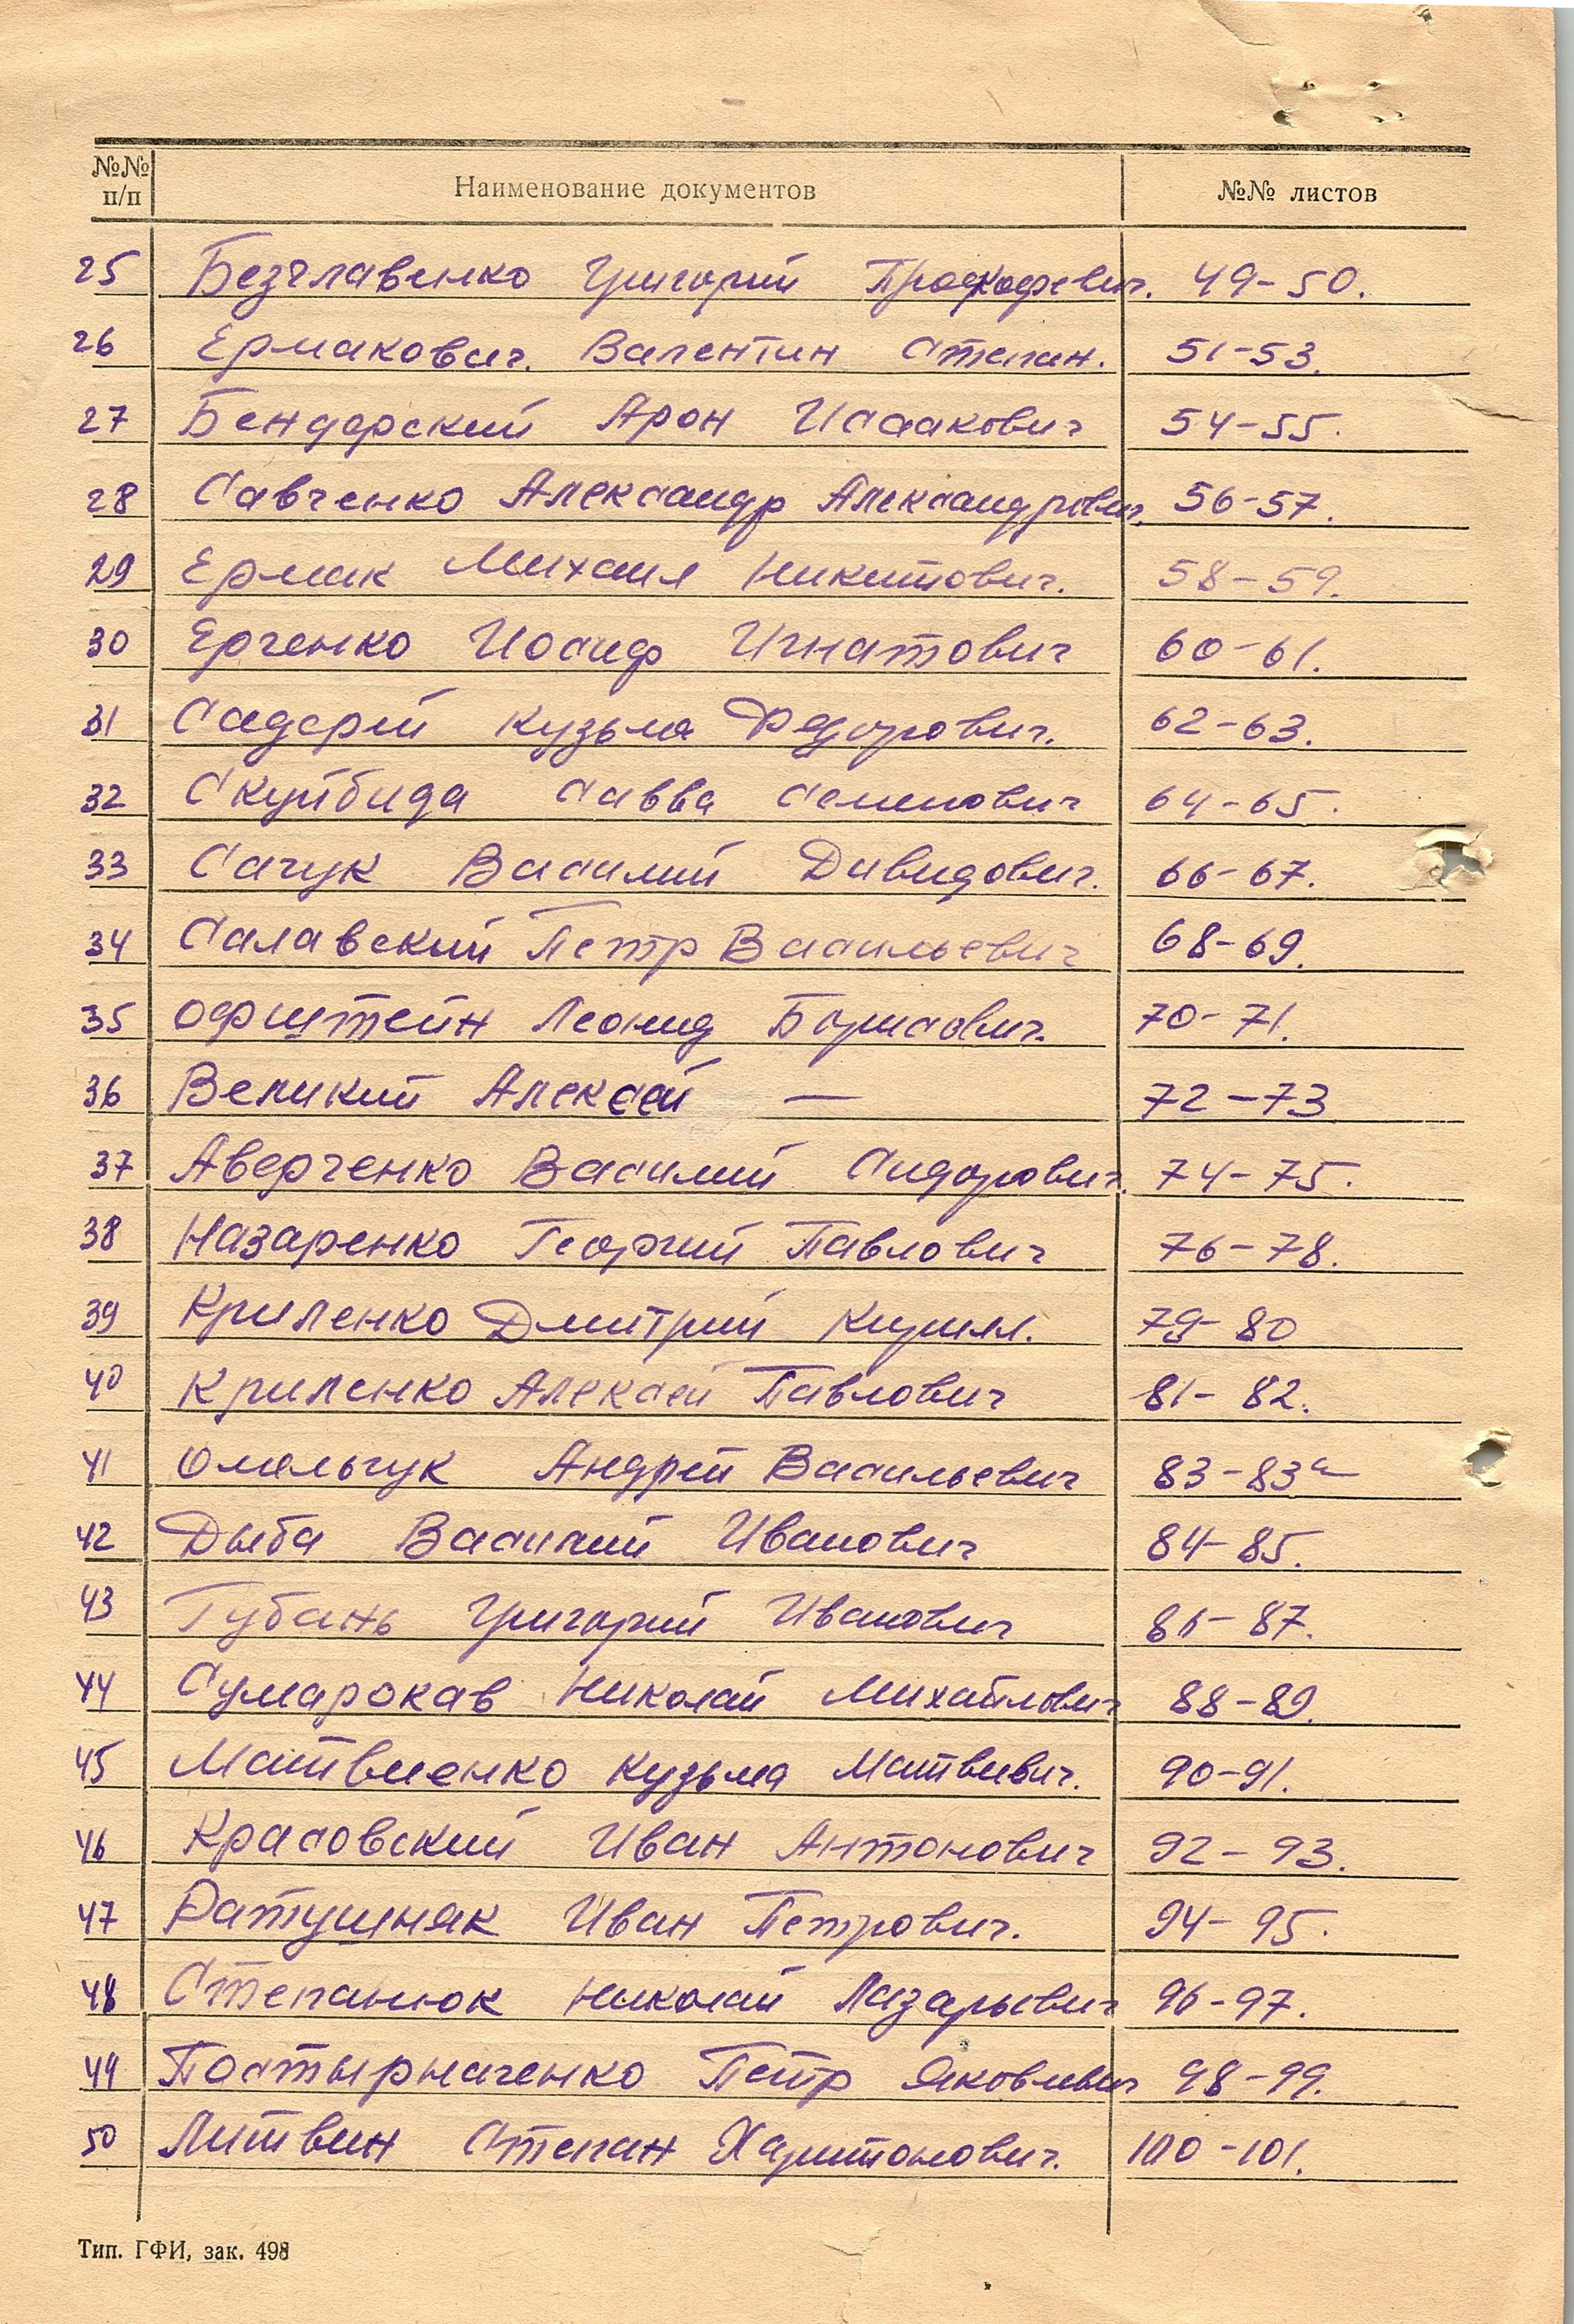 №№ п/п Наименование документов №№ листов
25 Безглавенко Григорий Прокофевич. 49-50.
26 Ермакович. Валентин Степан. 51-53.
27 Бендерский Арон Исаакович 54-55.
28 Савченко Александр Александрович. 56-57.
29 Ермак Михаил Никитович. 58-59.
30 Ерченко Иосиф Игнатович 60-61.
31 Садерей Кузьма Федорович. 62-63.
32 Скуйбида Савва Семенович 64-65.
33 Сачук Василий Давидович. 66-67.
34 Салавский Петр Васильевич 68-69.
35 Офштейн Леонид Борисович. 70-71.
36 Великий Алексей — 72-73
37 Аверченко Василий Сидорович. 74-75.
38 Назаренко Георгий Павлович 76-78.
39 Криленко Дмитрий Кирил. 79-80
40 Криленко Алексей Павлович 81-82.
41 Омельчук Андрей Васильевич 83-83а
42 Дыба Василий Иванович 84-85.
43 Губань Григорий Иванович 86-87.
44 Сумарокав Николай Михайлович 88-89.
45 Матвиенко Кузьма Матвиевич. 90-91.
46 Красовский Иван Антонович 92-93.
47 Ратушняк Иван Петрович. 94-95.
48 Степанюк Николай Лазарьевич 96-97.
49 Постырначенко Петр Яковлевич 98-99.
50 Литвин Степан Харитонович. 100-101.
Тип. ГФИ, зак. 498